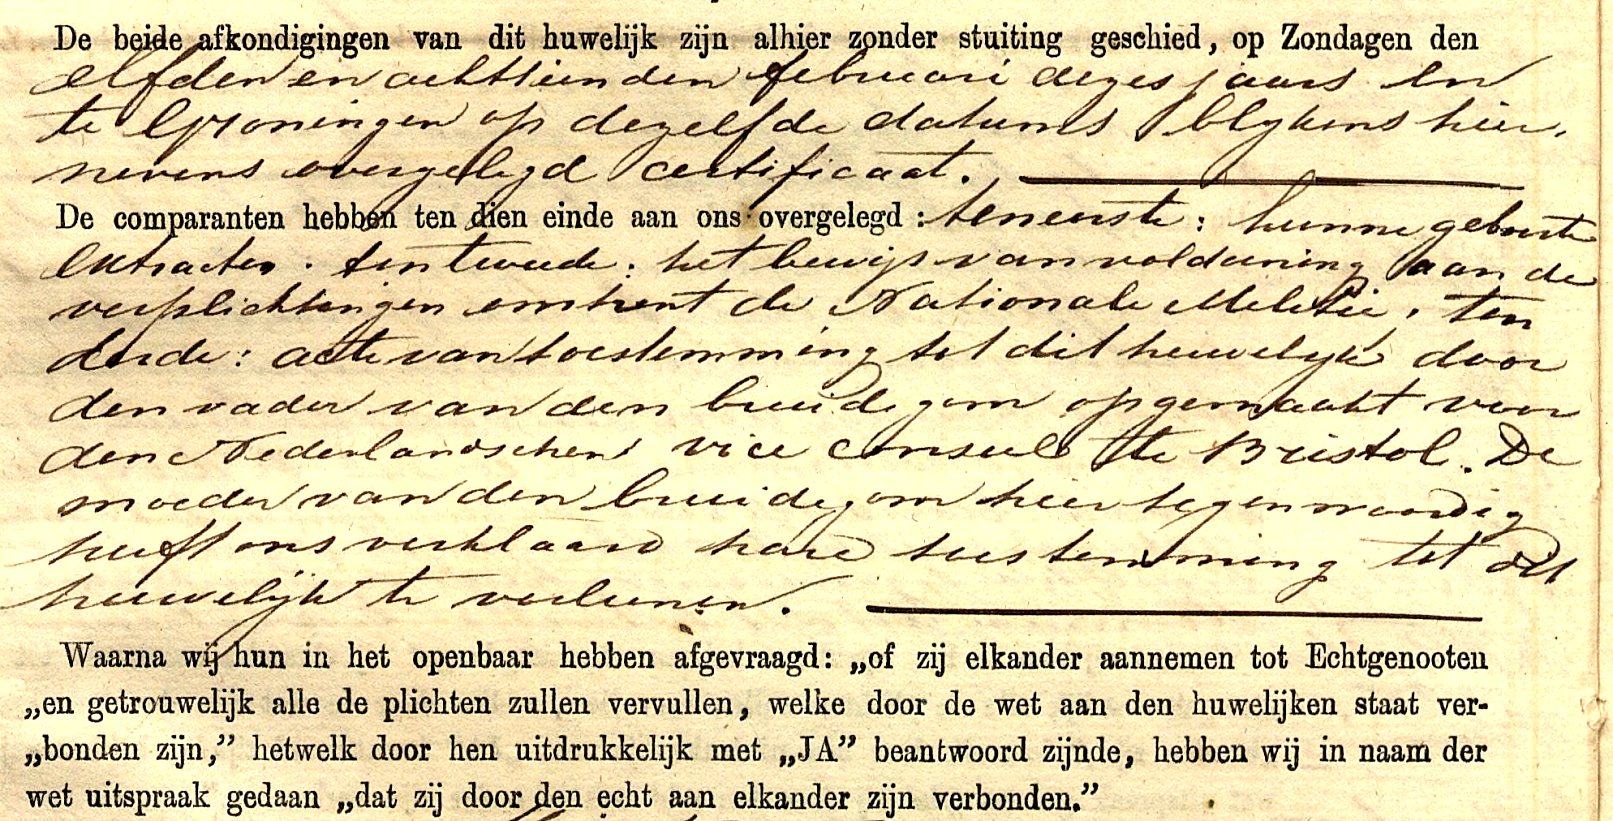 De beide afkondigingen van dit huwelijk zijn alhier zonder stuiting geschied, op Zondagen den
elfden en achttienden februari dezes jaars en
te Groningen op dezelfde datums blykens hier-
nevens overgelegd certificaat.
De comparanten hebben ten dien einde aan ons overgelegd : ten eerste : hunne geboorte
extracten . ten tweede : het bewijs van voldoening aan de
verplichtingen omtrent de Nationale Melitie . ten
derde : acte van toestemming tot dit huwelijk door
den vader van den bruidegom opgemaakt voor
den Nederlandschen vice consul te Bristol. De
moeder van den bruidegom hier tegenwoordig
heeft ons verklaard hare toestemming tot dit
huwelijk te verleenen.
Waarna wij hun in het openbaar hebben afgevraagd: „of zij elkander aannemen tot Echtgenooten
„en getrouwelijk alle de plichten zullen vervullen, welke door de wet aan den huwelijken staat ver-
„bonden zijn,” hetwelk door hen uitdrukkelijk met „JA” beantwoord zijnde, hebben wij in naam der
wet uitspraak gedaan „dat zij door den echt aan elkander zijn verbonden.”